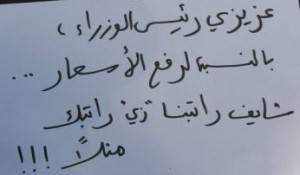 عزيزي رئيس الوزراء ،
بالنسبة لرفع الأسعار ...
شايف راتبنا "زي" راتبك
مثلاً !!!